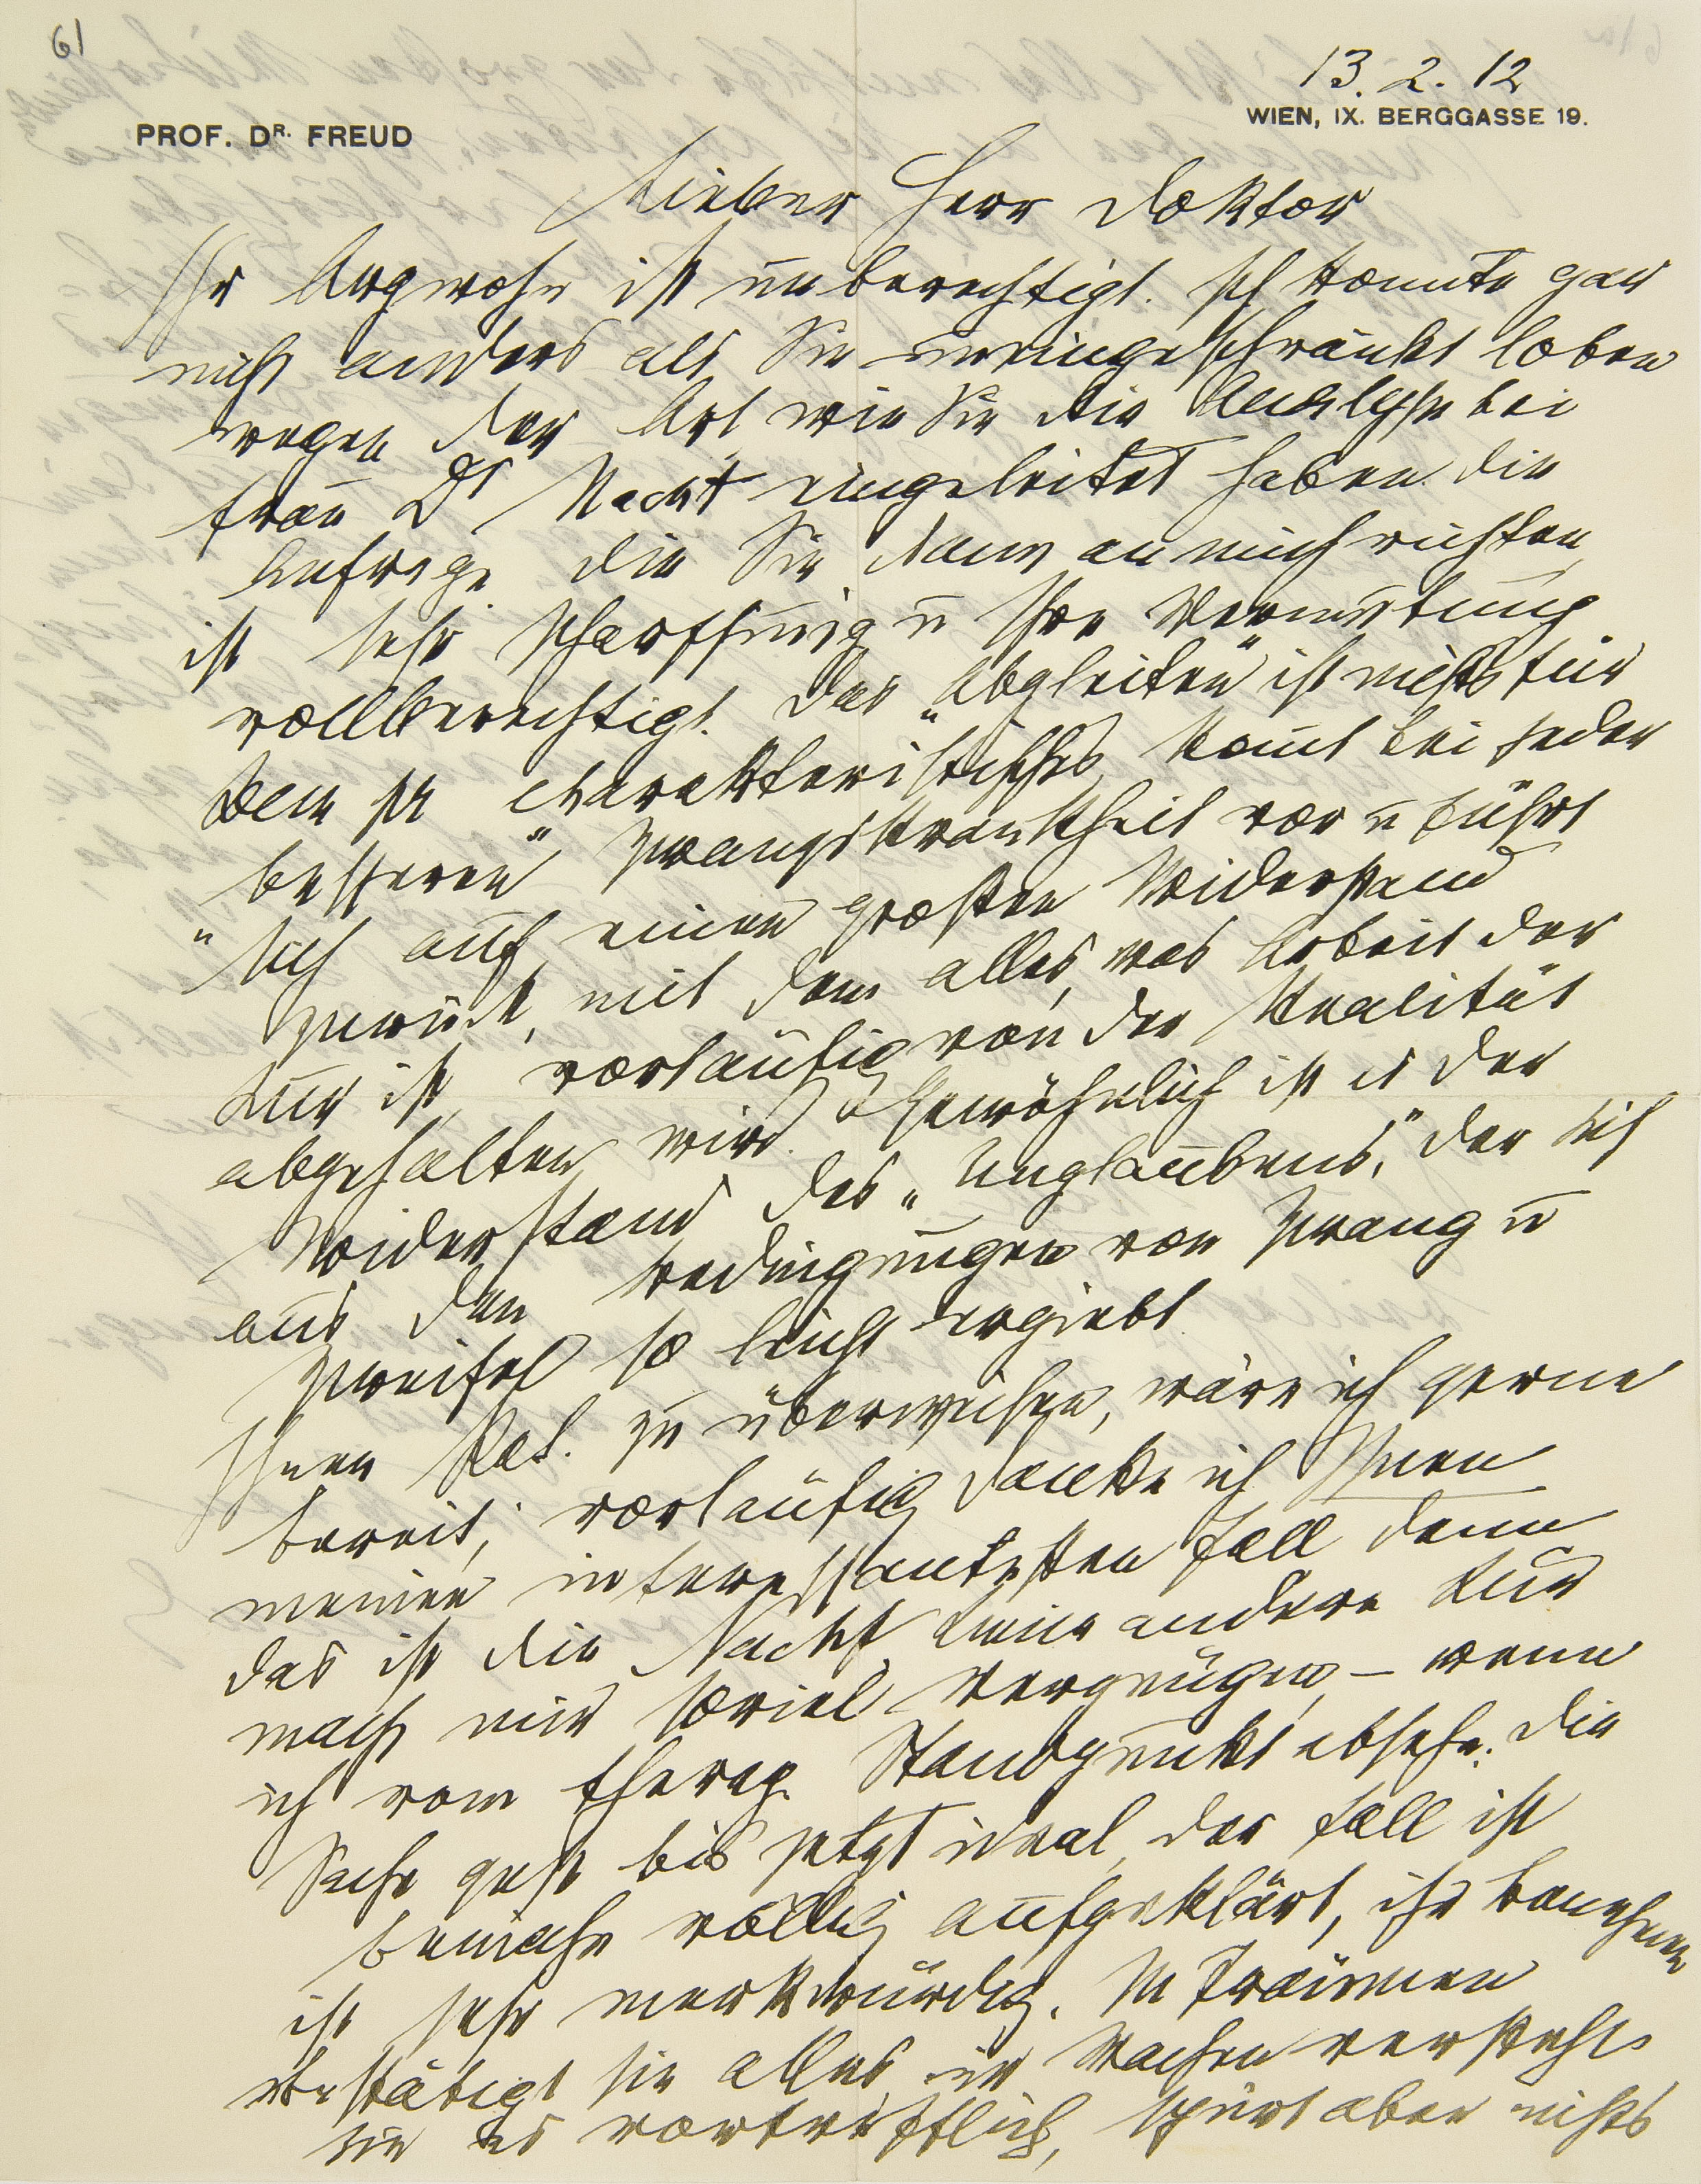 61
13. 2. 12
WIEN, IX. BERGGASSE 19.
PROF. DR. FREUD
Lieber Herr Doktor
Ihr Argwohn ist unberechtigt. Ich konnte gar
nicht anders als Sie uneingeschränkt loben
wegen der Art wie Sie die Analyse bei
Frau Dr Nacht eingeleitet haben. Die
Anfrage die Sie dann an mich richten,
ist sehr scharfsinnig u Ihre Vermutung
vollberechtigt. Das „Abgleiten“ ist nichts für
den charakteristisches, kommt bei jeder
„besseren“ Zwangskrankheit vor u führt
sich auf einen großen Widerstand
zurück, mit dem alles, was Arbeit der
Kur ist, vorläufig von der Realität
abgehalten wird. Gewöhnlich ist es der
Widerstand des „Unglaubens“, der sich
aus den Bedingungen von Zwang u
Zweifel so leicht ergiebt.
Ihnen Pat. zu überweisen, wäre ich gerne
bereit; vorläufig danke ich Ihnen
meinen interessantesten Fall denn
das ist die Nacht. Keine andere Kur
macht mir soviel Vergnügen – wenn
ich vom therap. Standpunkt absehe. Die
Sache geht bis jetzt ideal, der Fall ist
beinahe völlig aufgeklärt, ihr Benehmen
ist sehr merkwürdig. In Träumen
bestätigt sie alles, im Wachen versteht
sie es vortrefflich, spürt aber nichts